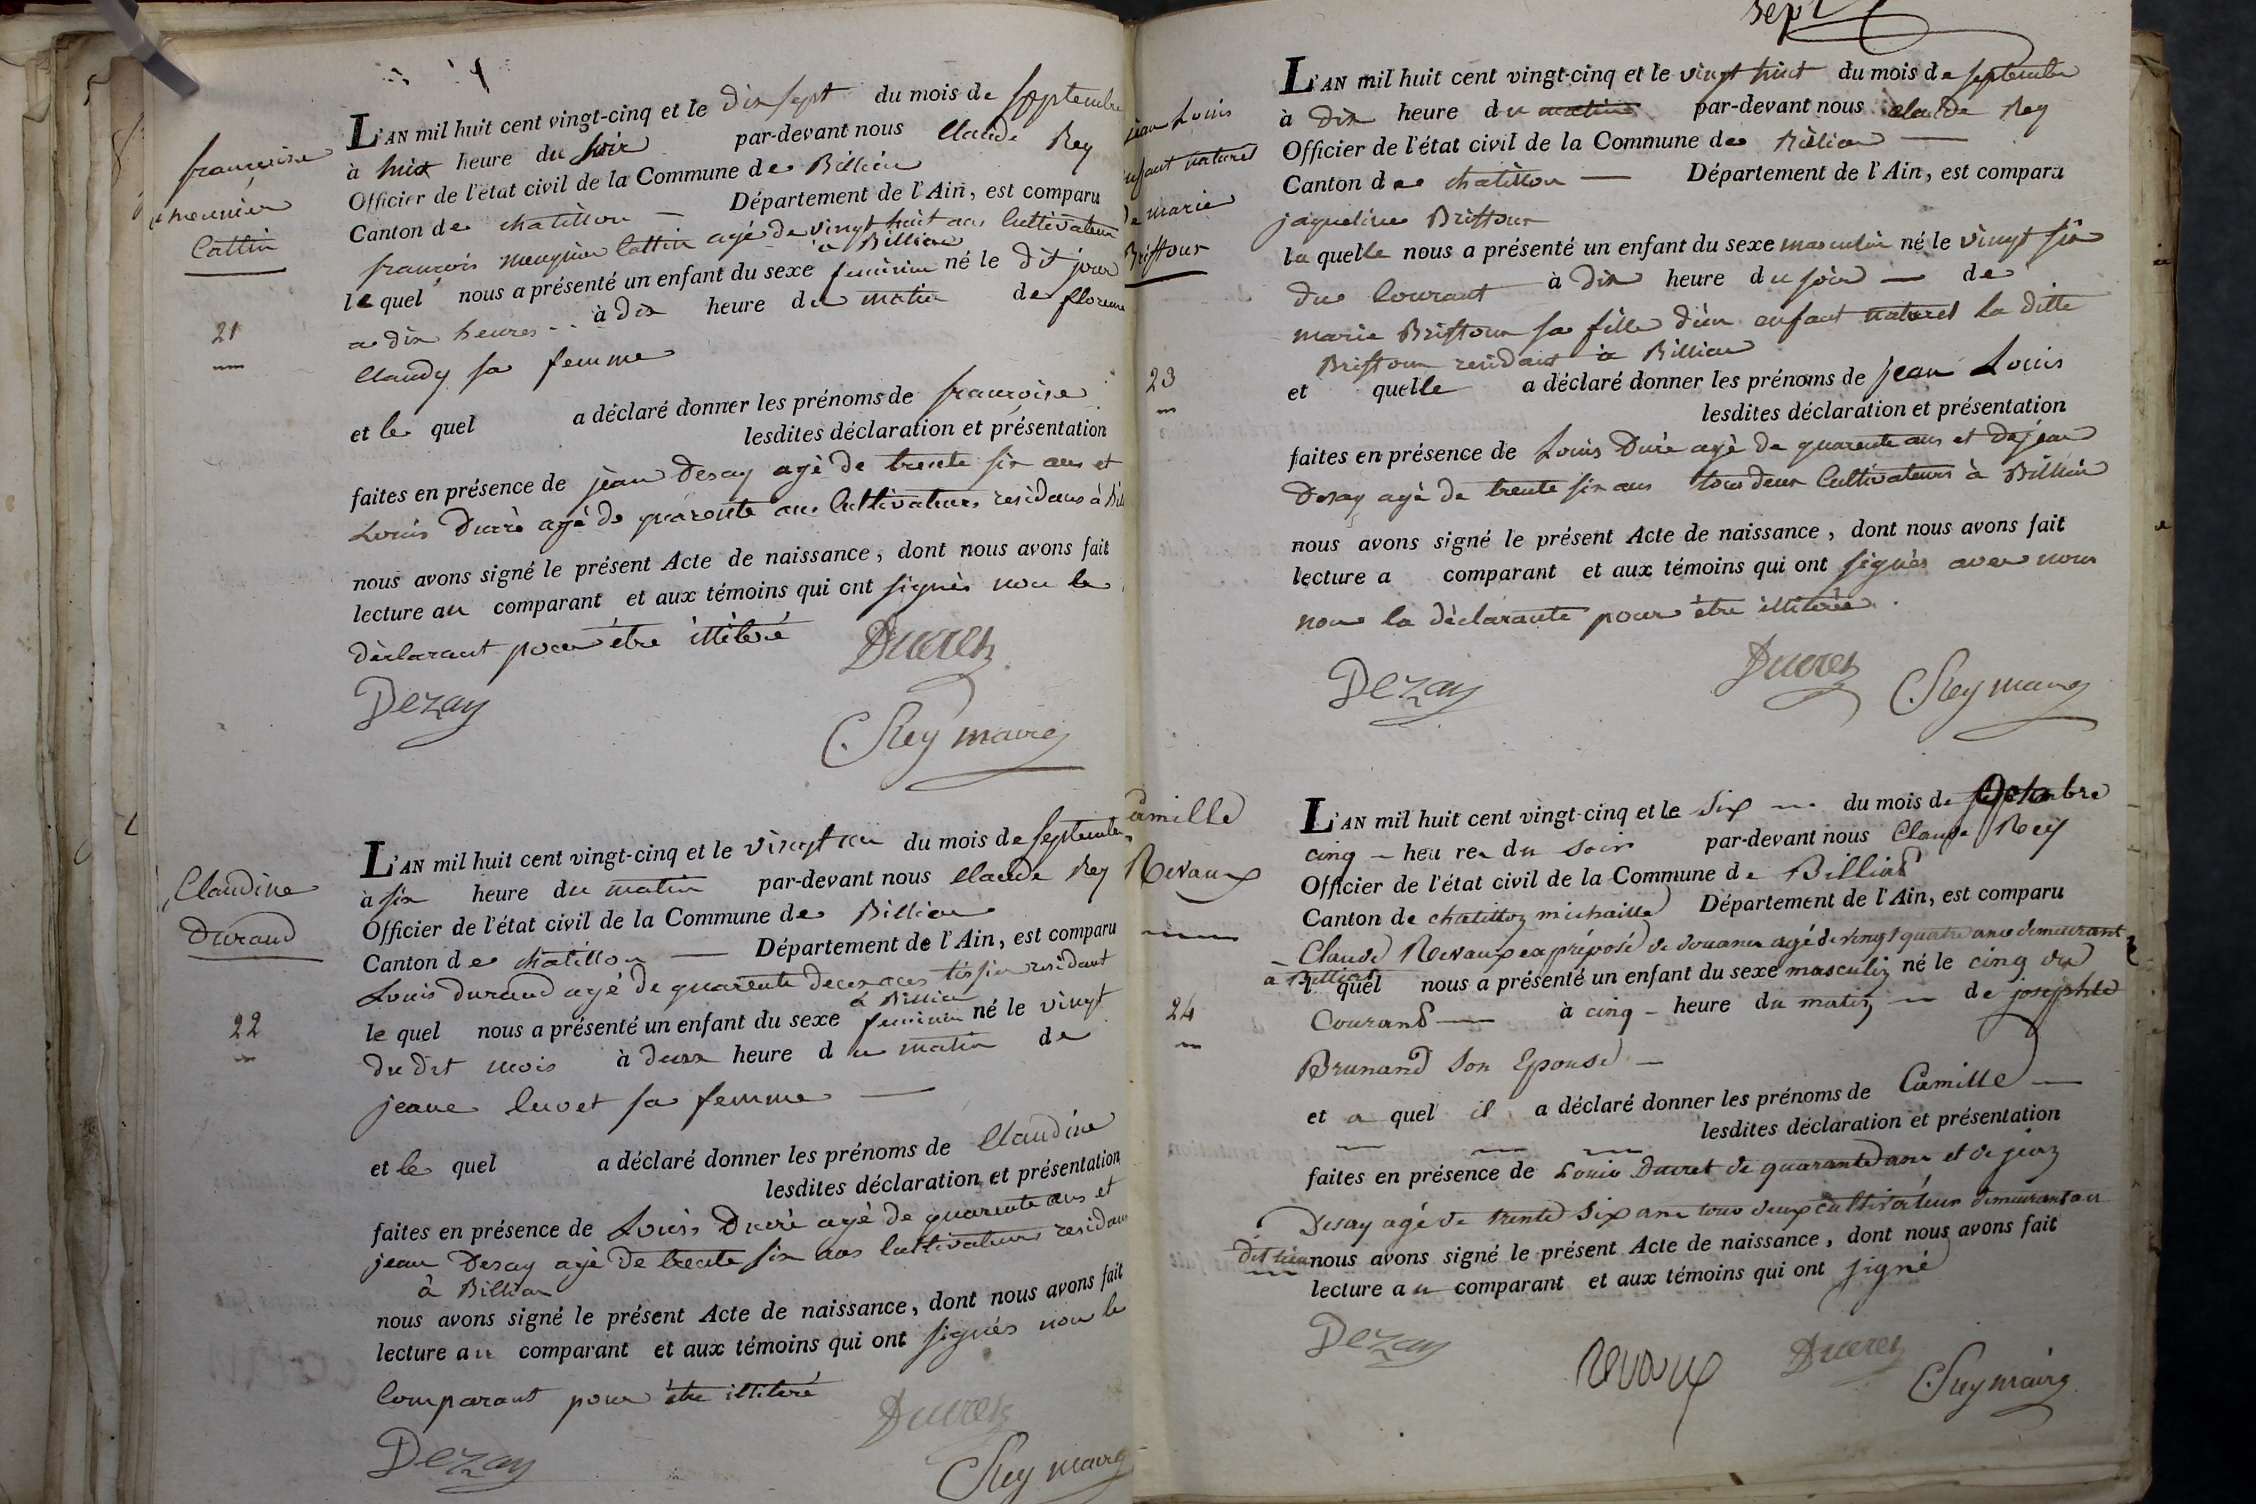 françoise
meunier
Cattin
21
L'AN mil huit cent vingt-cinq et le dix sept du mois de septembre
à huit heure du soir par-devant nous Claude Rey
Officier de l'état civil de la Commune de Billiau
Canton de chatillon — Département de l'Ain, est comparu
françois meugnier Cattin agé de vingt huit ans Cultivateur
à Billiau
le quel nous a présenté un enfant du sexe feminin né le dit jour
a dix heures à dix heure du matin de
Claudy sa femme
et le quel a déclaré donner les prénoms de françoise
lesdites déclaration et présentation
faites en présence de jean Desay agé de trente six ans et
Louis Ducré agé de quarente ans Cultivateurs residans à
nous avons signé le présent Acte de naissance, dont nous avons fait
lecture au comparant et aux témoins qui ont signés non le
déclarant pour être illiteré
Ducret
Dezay
C. Rey maire
Claudine
Durand
22
L'AN mil huit cent vingt-cinq et le vingt un du mois de septembre
à six heure du matin par-devant nous Claude Rey
Officier de l'état civil de la Commune de Billiau
Canton de chatillon — Département de l'Ain, est comparu
Louis Durand agé de quarente deux ans tissier residant
à Billiau
le quel nous a présenté un enfant du sexe feminin né le vingt
du dit mois à deux heure du matin de
jeane luvet sa femme —
et le quel a déclaré donner les prénoms de Claudine
lesdites déclaration et présentation
faites en présence de Louis Ducré agé de quarente ans et
jean Desay agé de trente six ans Cultivateurs residans
à Billiau
nous avons signé le présent Acte de naissance, dont nous avons fait
lecture au comparant et aux témoins qui ont signés non le
Comparant pour être illiteré
Ducret
Dezay
C Rey maire
Sept
jean Louis
enfant naturel
de marie
Briffour
23
L'AN mil huit cent vingt-cinq et le vingt huit du mois de septembre
à dix heure du matin par-devant nous Claude Rey
Officier de l'état civil de la Commune de Billiau —
Canton de chatillon — Département de l'Ain, est comparu
jaqueline Briffour
la quelle nous a présenté un enfant du sexe masculin né le vingt six
du Courant à dix heure du soir — de
marie Briffour sa fille d'un enfant naturel la ditte
Briffour residant à Billiau
et quelle a déclaré donner les prénoms de jean Louis
lesdites déclaration et présentation
faites en présence de Louis Ducré agé de quarente ans et de jean
Desay agé de trente six ans tous deux Cultivateurs à Billiau
nous avons signé le présent Acte de naissance, dont nous avons fait
lecture a comparant et aux témoins qui ont signés avec nous
non la déclarante pour être illiterée.
Dezay
Ducret
C Rey maire
Camille
Revaux
24
L'AN mil huit cent vingt-cinq et le six du mois de Octobre
cinq — heu res du soir par-devant nous Claude Rey
Officier de l'état civil de la Commune de Billiat
Canton de chatillon michaille Département de l'Ain, est comparu
Claude Revaux ex préposé de douanes agé de vingt quatre ans demeurant
a Billiat
l quel nous a présenté un enfant du sexe masculin né le cinq du
Courant — à cinq — heure du matin — de josephte
Brunand Son Epouse —
et a quel il a déclaré donner les prénoms de Camille —
lesdites déclaration et présentation
faites en présence de Louis Ducret de quarante ans et de jean
Desay agé de trente six ans tous deux cultivateurs demeurant au
dit lieu nous avons signé le présent Acte de naissance, dont nous avons fait
lecture au comparant et aux témoins qui ont signé
Dezay
Revaux
Ducret
C Rey maire